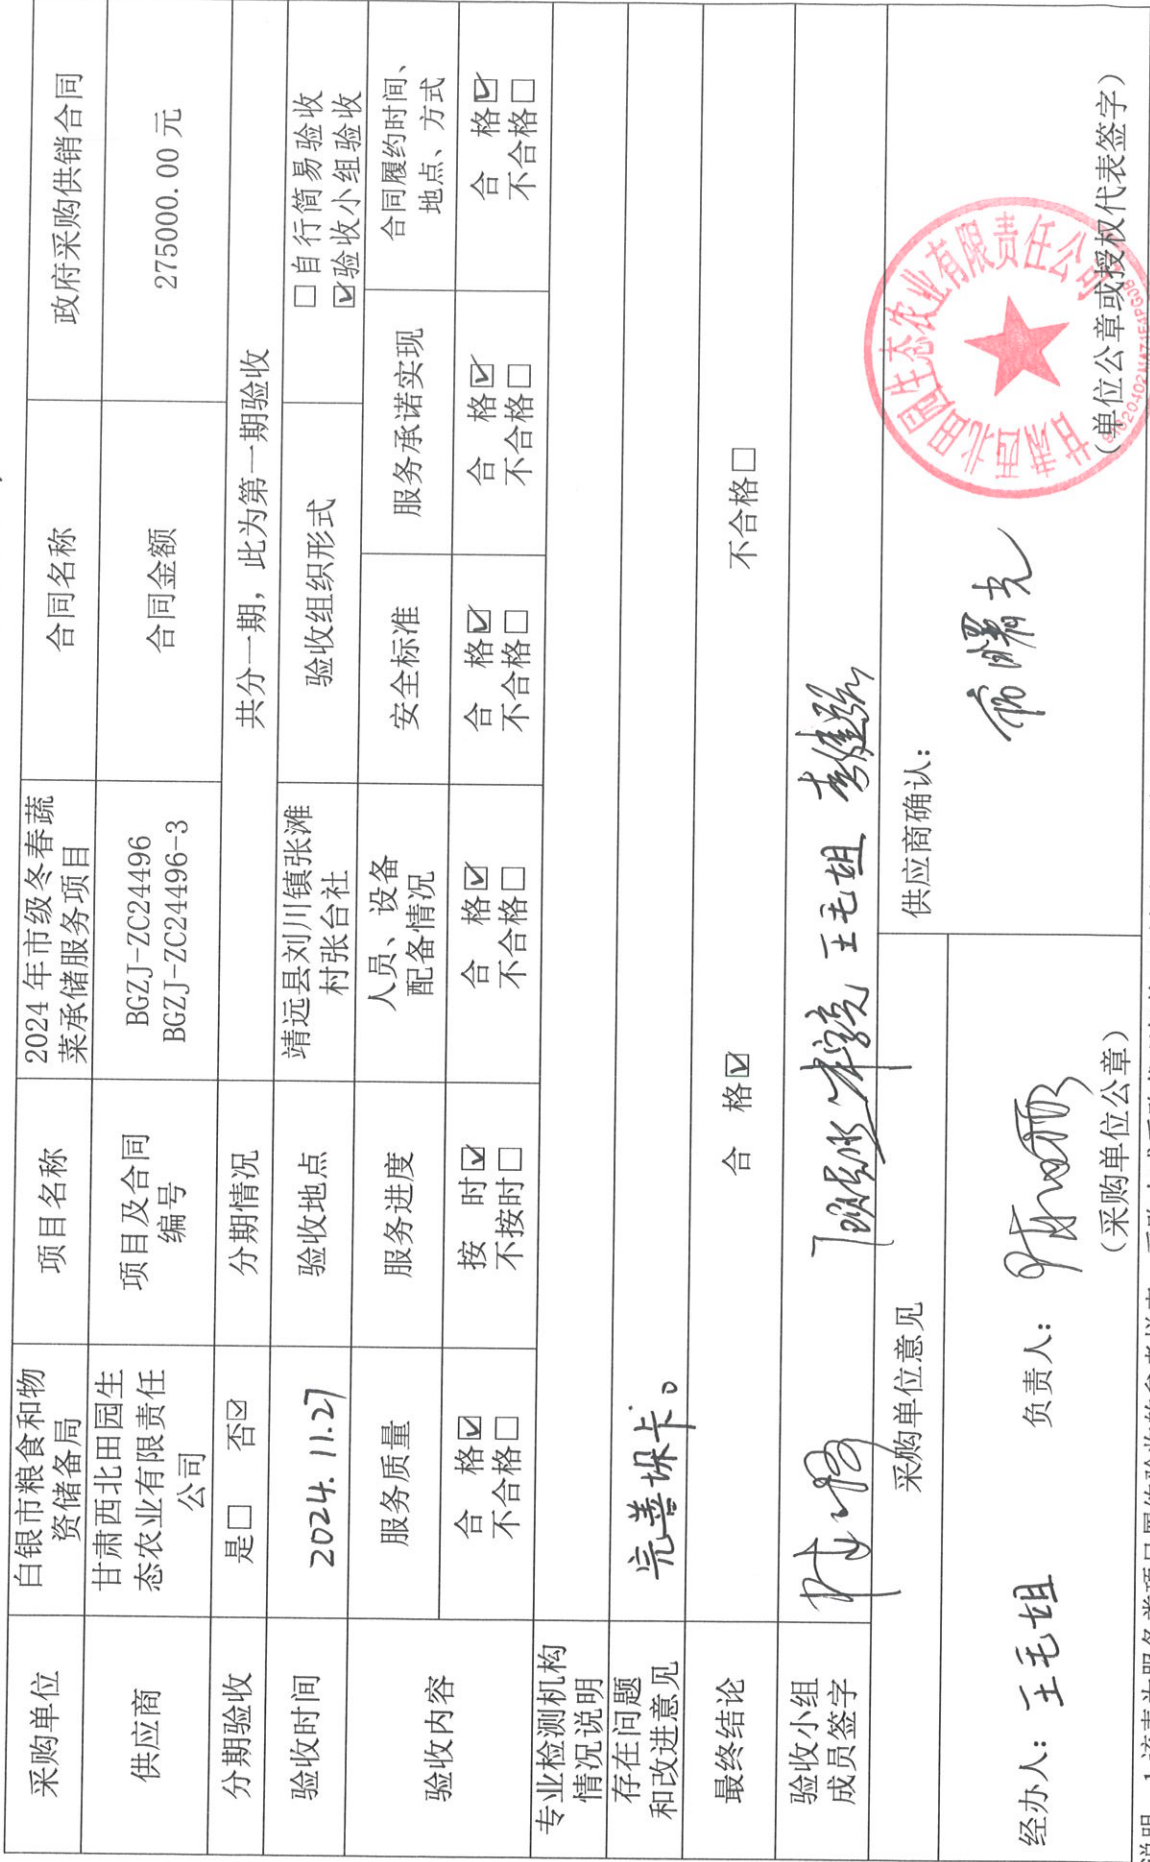 采购单位
白银市粮食和物
资储备局
项目名称
2024年市级冬春蔬
菜承储服务项目
合同名称
政府采购供销合同
供应商
甘肃西北田园生
态农业有限责任
公司
项目及合同
编号
BGZJ-ZC24496
BGZJ-ZC24496-3
合同金额
275000.00元
分期验收
是□ 否☑
分期情况
共分一期，此为第一期验收
验收时间
2024.11.27
验收地点
靖远县刘川镇张滩
村张台社
验收组织形式
□自行简易验收
☑验收小组验收
验收内容
服务质量
服务进度
人员、设备
配备情况
安全标准
服务承诺实现
合同履约时间、
地点、方式
合 格☑
不合格□
按 时☑
不按时□
合 格☑
不合格□
合 格☑
不合格□
合 格☑
不合格□
合 格☑
不合格□
专业检测机构
情况说明
存在问题
和改进意见
完善垛卡。
最终结论
合 格☑
不合格□
验收小组
成员签字
王毛姐
采购单位意见
供应商确认：
经办人：王毛姐
负责人：
（采购单位公章）
甘肃西北田园生态农业有限责任公司
（单位公章或授权代表签字）